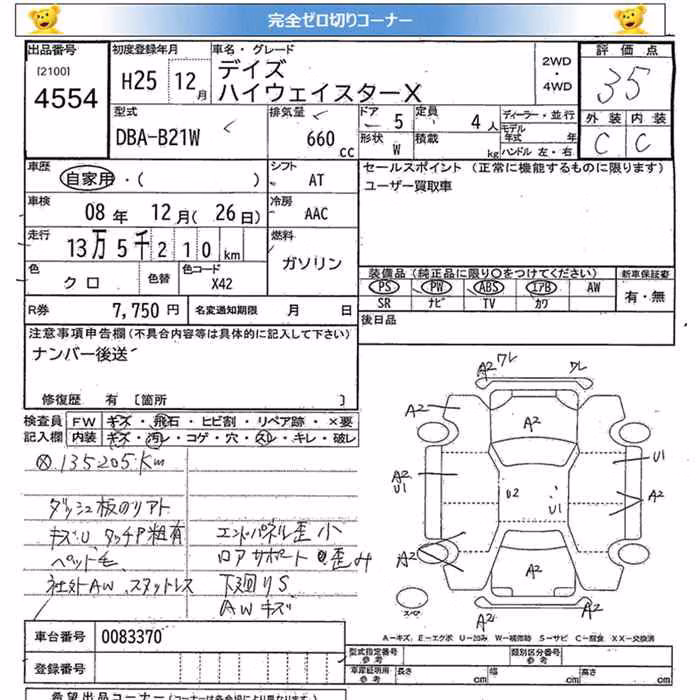 完全ゼロ切りコーナー
出品番号
[2100]
4554
初度登録年月
H25 12月
車名・グレード
デイズ
ハイウェイスターX
2WD
・
4WD
評価点
35
外装 内装
C C
型式
DBA-B21W
排気量
660 cc
ドア 5
定員 4人
形状 W
積載 kg
ディーラー・並行
モデル年式 年
ハンドル 左・右
車歴
自家用・( )
シフト
AT
車検
08年 12月(26日)
冷房
AAC
走行
13万5千210km
燃料
ガソリン
色
クロ
色替
色コード
X42
R券 7,750円
名変通知期限 月 日
セールスポイント (正常に機能するものに限ります)
ユーザー買取車
装備品(純正品に限り○をつけてください)
PS PW ABS エアB AW
SR ナビ TV カワ
新車保証書
有・無
後日品
注意事項申告欄(不具合内容等は具体的に記入して下さい)
ナンバー後送
修復歴 有 [箇所 ]
検査員記入欄
FW キズ・飛石・ヒビ割・リペア跡・×要
内装 キズ・汚レ・コゲ・穴・スレ・キレ・破レ
135205Km
ダッシュ板のリアト
キズU、タッチP粗有
ペット毛
社外AW、スタットレス
エンドパネル歪小
ロアサポート歪み
下廻りS
AWキズ
A2 ワレ
ワレ
A2
A2
A2
U1
U1
U2
U1
A2
A2
A2
A2
A2
スペア
A-キズ、E-エクボ U-凹み W-補修跡 S-サビ C-腐食 XX-交換済
車台番号 0083370
登録番号
型式指定番号
参考
類別区分番号
参考
車庫証明用
参考
長さ cm
幅 cm
高さ cm
希望出品コーナー